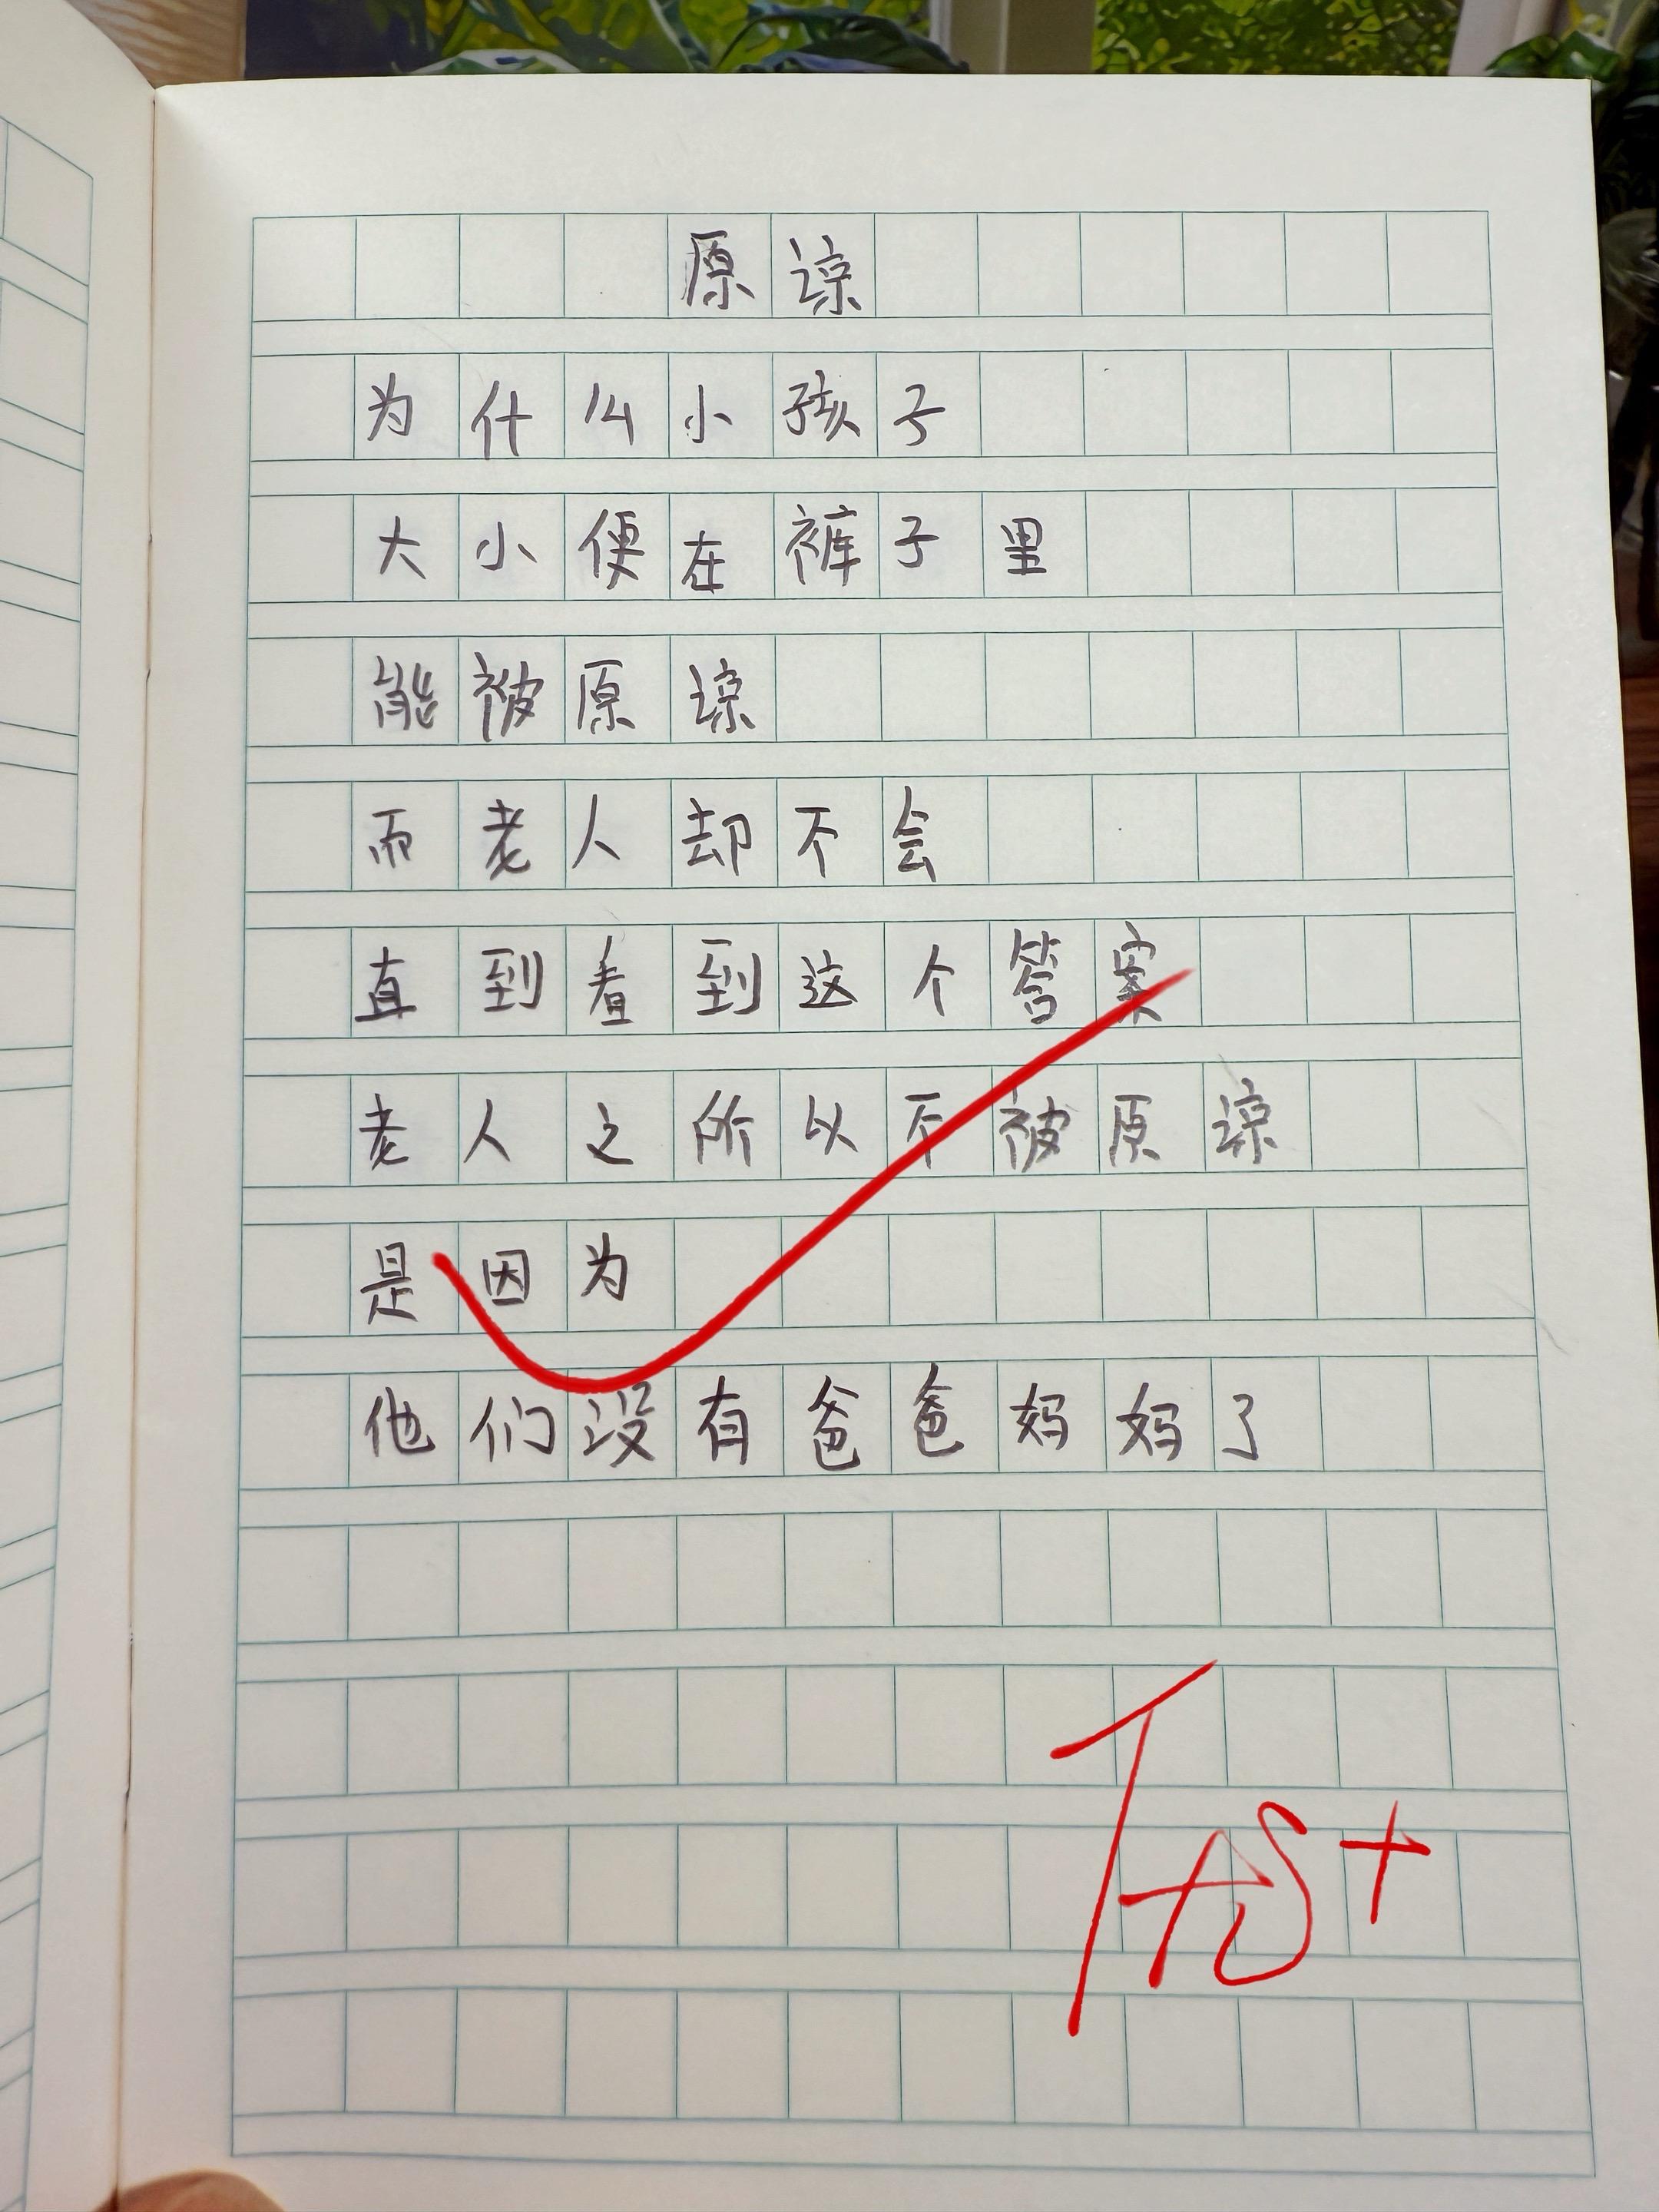 原谅
为什么小孩子
大小便在裤子里
能被原谅
而老人却不会
直到看到这个答案
老人之所以不被原谅
是因为
他们没有爸爸妈妈了